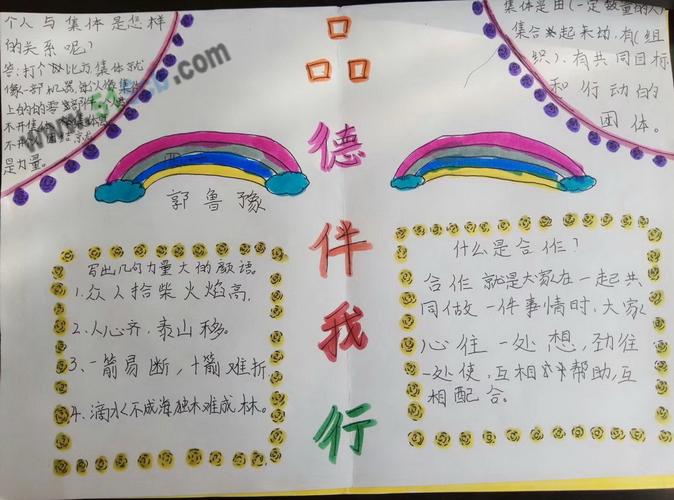 个人与集体是怎样
的关系呢？
答：打个比方，集体就
像一部机器，每个人像集体
上的的零部件，个人
不开集体
是力量。
集体是由（一定数量的人）
集合一起来动，有（组
织），有共同目标
和行动的
团体。
品德伴我行
郭鲁豫
写出几句力量大的颜语。
1.众人拾柴火焰高，
2.人心齐，泰山移。
3.一箭易断，十箭难折
4.滴水不成海独木难成林。
什么是合作？
合作就是大家在一起共
同做一件事情时，大家
心往一处想，劲往
一处使，互相帮助，互
相配合。